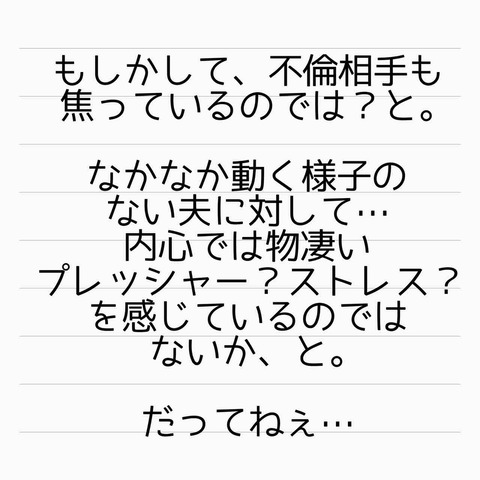 もしかして、不倫相手も
焦っているのでは？と。
なかなか動く様子の
ない夫に対して…
内心では物凄い
プレッシャー？ストレス？
を感じているのでは
ないか、と。
だってねぇ…